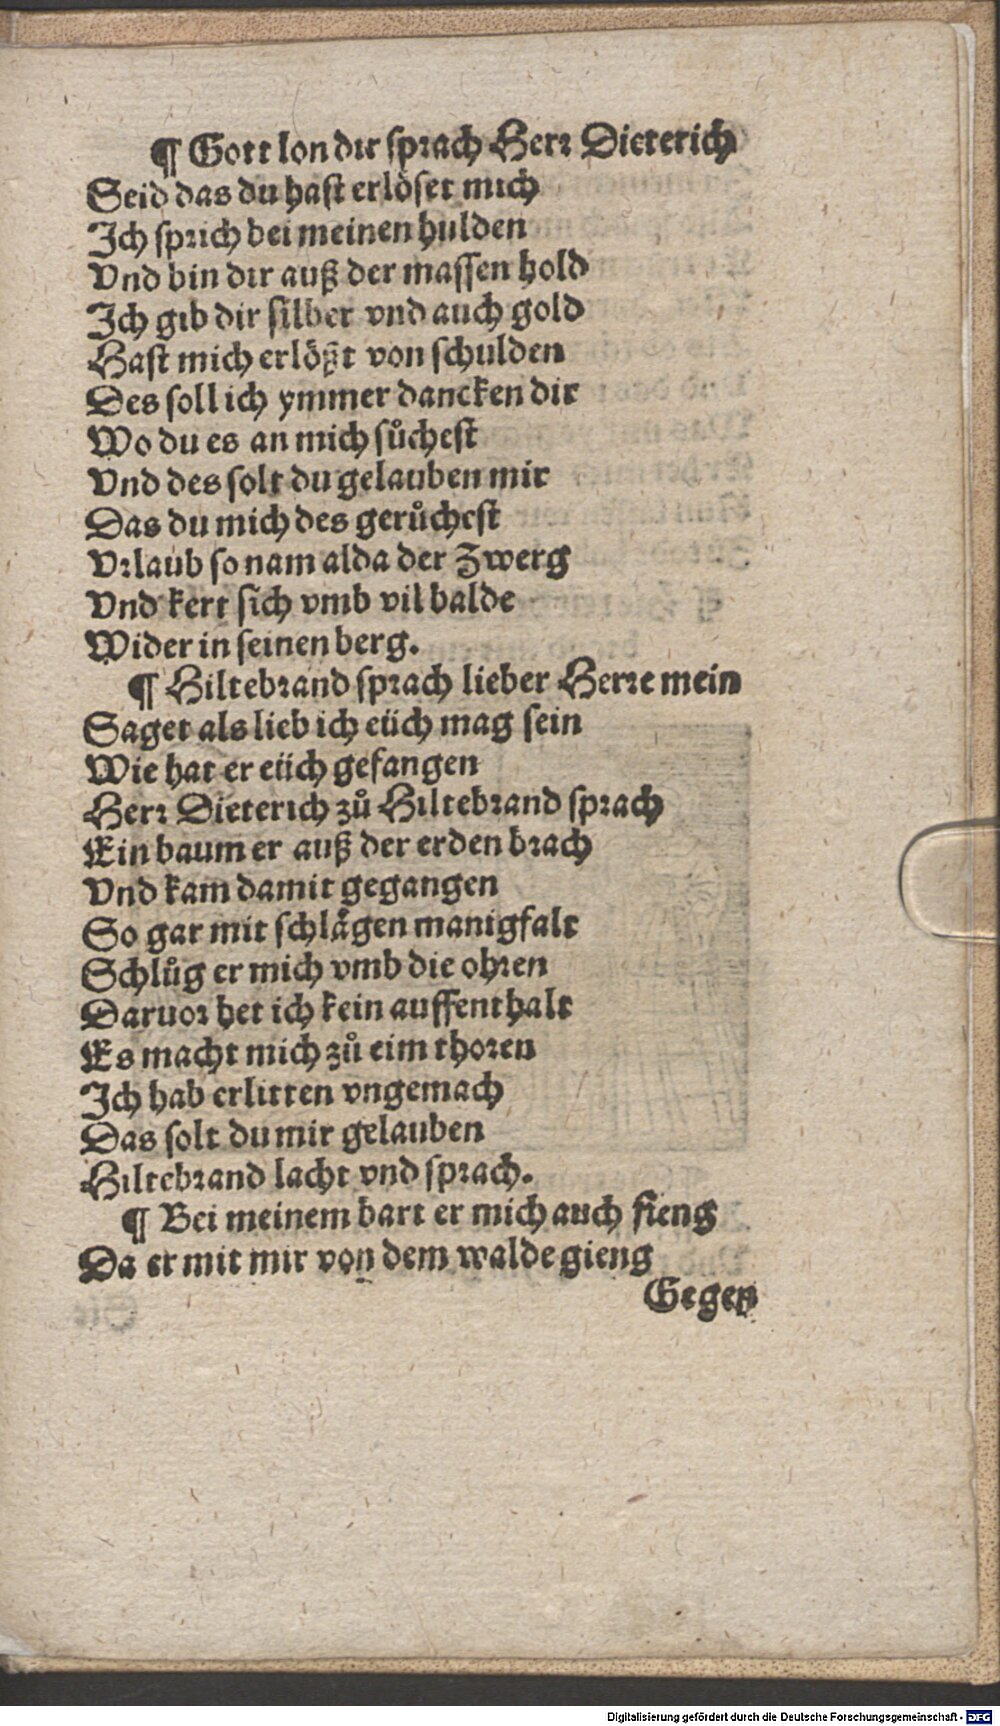 ¶ Gott lon dir sprach Herr Dieterich
Seid das du hast erlöset mich
Ich sprich bei meinen hulden
Vnd bin dir auß der massen hold
Ich gib dir silber vnd auch gold
Hast mich erlößt von schulden
Des soll ich ymmer dancken dir
Wo du es an mich sůchest
Vnd des solt du gelauben mir
Das du mich des gerůchest
Vrlaub so nam alda der Zwerg
Vnd kert sich vmb vil balde
Wider in seinen berg.
¶ Hiltebrand sprach lieber Herre mein
Saget als lieb ich eüch mag sein
Wie hat er eüch gefangen
Herr Dieterich zů Hiltebrand sprach
Ein baum er auß der erden brach
Vnd kam damit gegangen
So gar mit schlägen manigfalt
Schlůg er mich vmb die ohren
Daruor het ich kein auffenthalt
Es macht mich zů eim thoren
Ich hab erlitten vngemach
Das solt du mir gelauben
Hiltebrand lacht vnd sprach.
¶ Bei meinem bart er mich auch fieng
Da er mit mir von dem walde gieng
Gegen
Digitalisierung gefördert durch die Deutsche Forschungsgemeinschaft - DFG